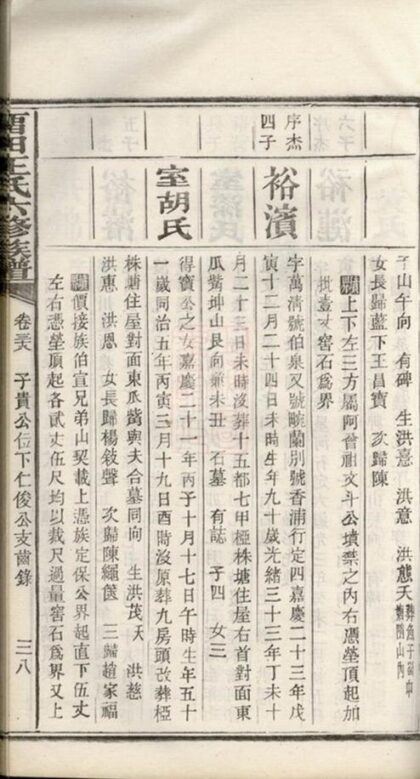 子山午向 有碑 生洪意 洪意 洪態夭
女長歸藍下王昌寶 次歸陳
上下左三方屬阿曾祖文斗公墳禁之內右憑塋頂起加
批壹丈窖石爲界
序杰四子
裕濱
字萬清號伯泉又號畹蘭別號香浦行定四嘉慶二十三年戊
寅十二月二十四日未時生年九十歲光緒三十三年丁未十
月二十三日未時沒葬十五都七甲椏株塘住屋右首對面東
瓜觜坤山艮向兼未丑 石墓 有誌 子四 女三
室胡氏
得寶公之女嘉慶二十一年丙子十月十七日午時生年五十
一歲同治五年丙寅三月十九日酉時沒原葬九房頭改葬椏
株塘住屋對面東瓜觜與夫合墓同向 生洪茂夭 洪慈
洪惠 洪恩 女長歸楊敍聲 次歸陳繩篋 三歸趙家福
價接族伯宣兄弟山契載上憑族定保公界起直下伍丈
左右憑塋頂起各貳丈伍尺均以裁尺過量窖石爲界又上
田王氏六修族譜
卷三六 子貴公位下仁俊公支齒錄 三八